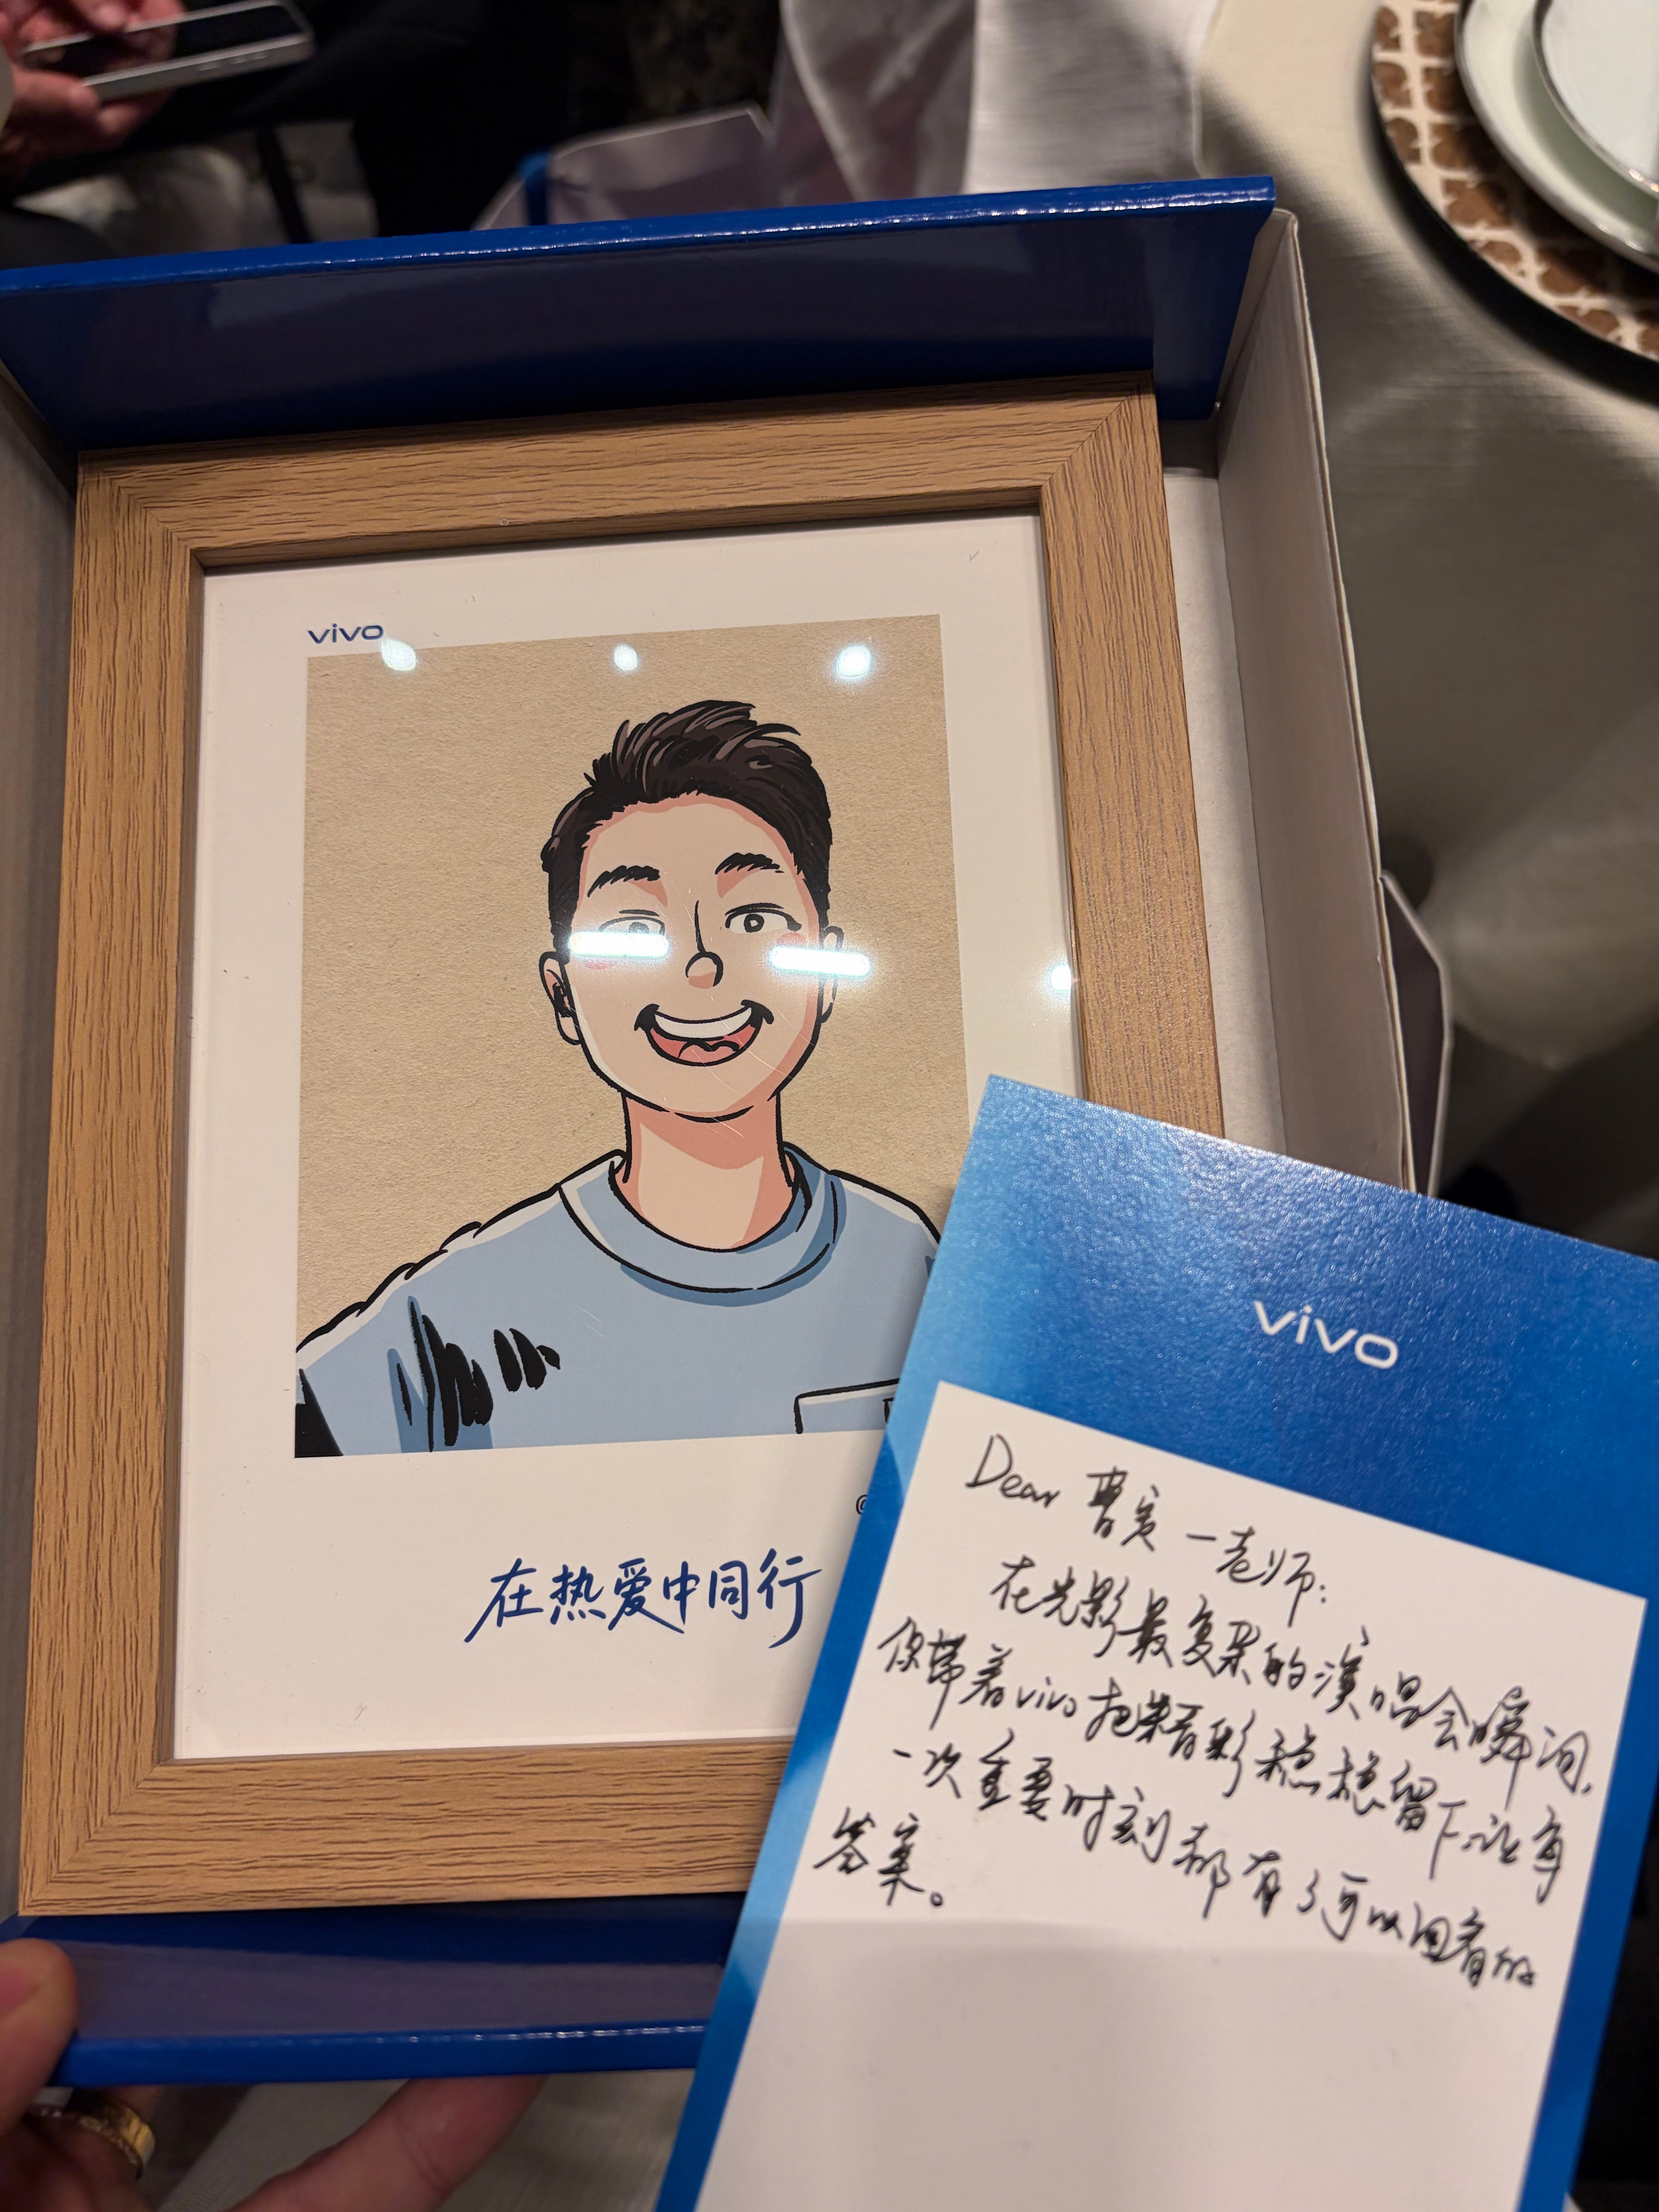 vivo
在热爱中同行
vivo
Dear 曹奕一老师:
在光影最复杂的演唱会瞬间,
你带着vivo把精彩稳稳留下让每
一次重要时刻都有了可以回看的
答案。